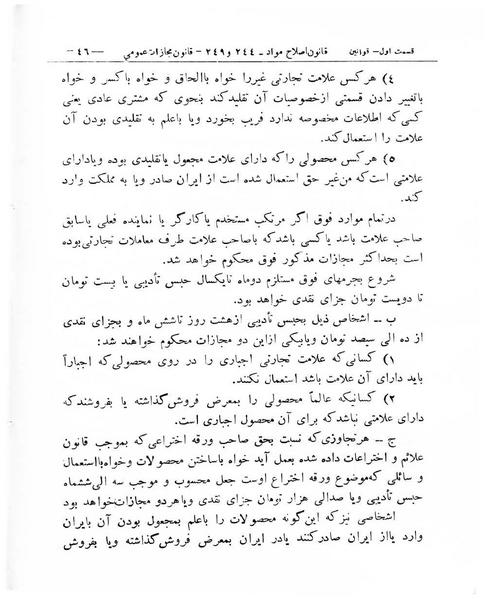 قسمت اول– قوانین قانون اصلاح مواد – ۲۴۴ و ۲۴۹ – قانون مجازات عمومي —۴۶—
۴) هر کس علامت تجارتی غیر را خواه با الحاق و خواه با کسر و خواه
با تغییر دادن قسمتی از خصوصیات آن تقلید کند بنحوی که مشتری عادی یعنی
کسی که اطلاعات مخصوصه ندارد فریب بخورد و یا باعلم به تقلیدی بودن آن
علامت را استعمال کند.
۵) هر کس محصولی را که دارای علامت مجعول یا تقلیدی بوده و یا دارای
علامتی است که من غیر حق استعمال شده است از ایران صادر و یا به مملکت وارد
کند.
در تمام موارد فوق اگر مرتکب مستخدم یا کارگر یا نماینده فعلی یا سابق
صاحب علامت باشد یا کسی باشد که با صاحب علامت طرف معاملات تجارتی بوده
است بحداکثر مجازات مذکور فوق محکوم خواهد شد.
شروع بجرمهای فوق مستلزم دو ماه تا یکسال حبس تأدیبی یا بیست تومان
تا دویست تومان جزای نقدی خواهد بود.
ب – اشخاص ذیل بحبس تأدیبی از هشت روز تا شش ماه و بجزای نقدی
از ده الی سیصد تومان و یا بیکی از این دو مجازات محکوم خواهند شد:
۱) کسانی که علامت تجارتی اجباری را در روی محصولی که اجباراً
باید دارای آن علامت باشد استعمال نکنند.
۲) کسانیکه عالماً محصولی را بمعرض فروش گذاشته یا بفروشند که
دارای علامتی نباشد که برای آن محصول اجباری است.
ج – هر تجاوزی که نسبت بحق صاحب ورقه اختراعی که بموجب قانون
علائم و اختراعات داده شده بعمل آید خواه با ساختن محصولات و خواه با استعمال
وسائلی که موضوع ورقه اختراع اوست جعل محسوب و موجب سه الی ششماه
حبس تأدیبی و یا صد الی هزار تومان جزای نقدی و یا هر دو مجازات خواهد بود
اشخاصی نیز که این گونه محصولات را با علم بمجعول بودن آن بایران
وارد یا از ایران صادر کنند یا در ایران بمعرض فروش گذاشته و یا بفروش